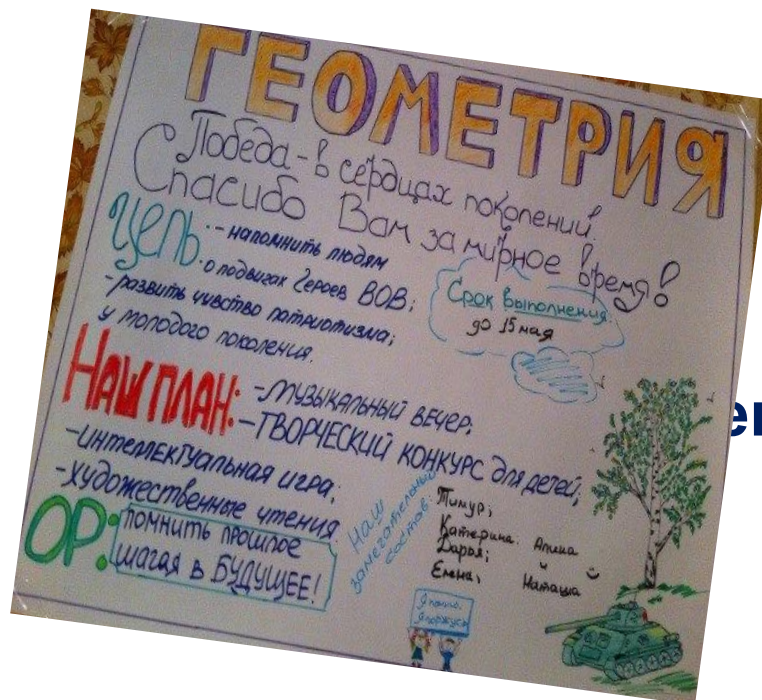 ГЕОМЕТРИЯ
Победа - в сердцах поколений
Спасибо Вам за мирное время!
Цель: - напомнить людям
о подвигах героев ВОВ;
- развить чувство патриотизма;
у молодого поколения.
Срок выполнения:
до 15 мая
НАШ ПЛАН: - МУЗЫКАЛЬНЫЙ ВЕЧЕР;
- ТВОРЧЕСКИЙ КОНКУРС для детей;
- интеллектуальная игра;
- художественные чтения
ОР: помнить прошлое
шагая в БУДУЩЕЕ!
Наш
замечательный
состав:
Тимур;
Катерина;
Дарья;
Елена;
Алина
и
Наташа
Я помню.
Я горжусь